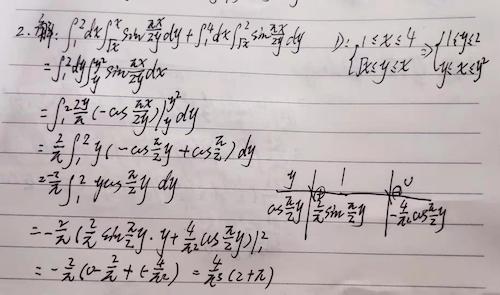 2. 解: ∫₁² dx ∫_{√x}^{x} sin (πx/2y) dy + ∫₁⁴ dx ∫_{√x}^{2} sin (πx/2y) dy
D: { 1≤x≤4, √x≤y≤x => { 1≤y≤2, y≤x≤y²
= ∫₁² dy ∫_y^{y²} sin (πx/2y) dx
= ∫₁² (2y/π) (-cos (πx/2y)) |_y^{y²} dy
= (2/π) ∫₁² y (-cos (π/2)y + cos (π/2)) dy
= (-2/π) ∫₁² y cos (π/2)y dy
y 1 0
⊕ ⊖
cos (π/2)y (2/π) sin (π/2)y -(4/π²) cos (π/2)y
= -(2/π) ((2/π) sin (π/2)y · y + (4/π²) cos (π/2)y) |₁²
= -(2/π) (0 - (2/π) + (-(4/π²)) = (4/π³) (2+π)